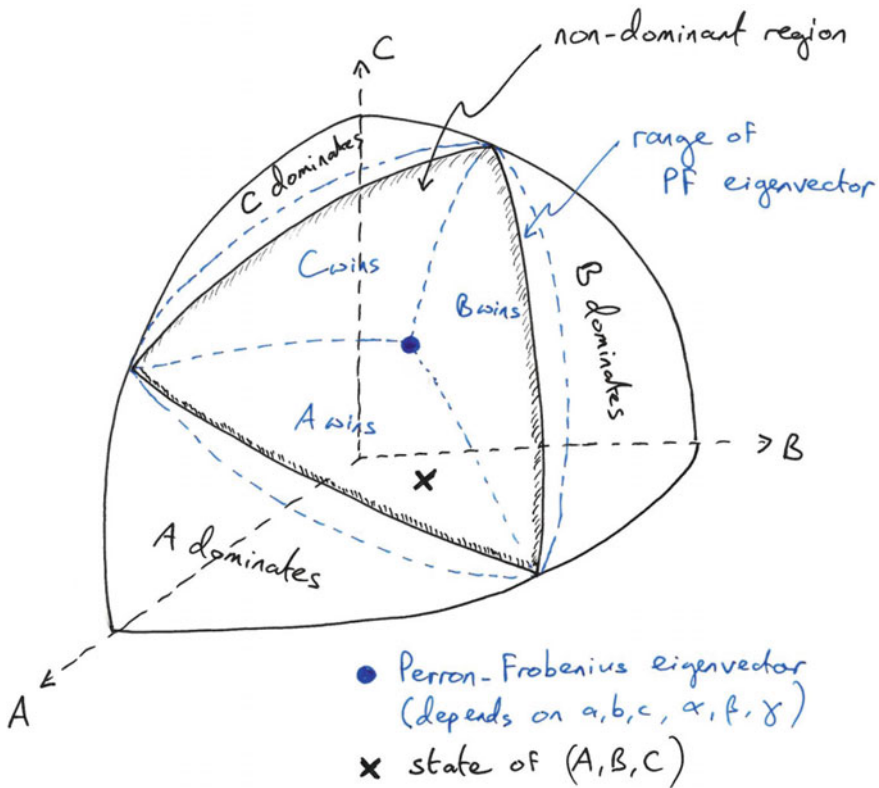 C
non-dominant region
range of
PF eigenvector
C dominates
C wins
B wins
B dominates
A wins
B
A dominates
A
Perron-Frobenius eigenvector
(depends on a, b, c, α, β, γ)
× state of (A, B, C)